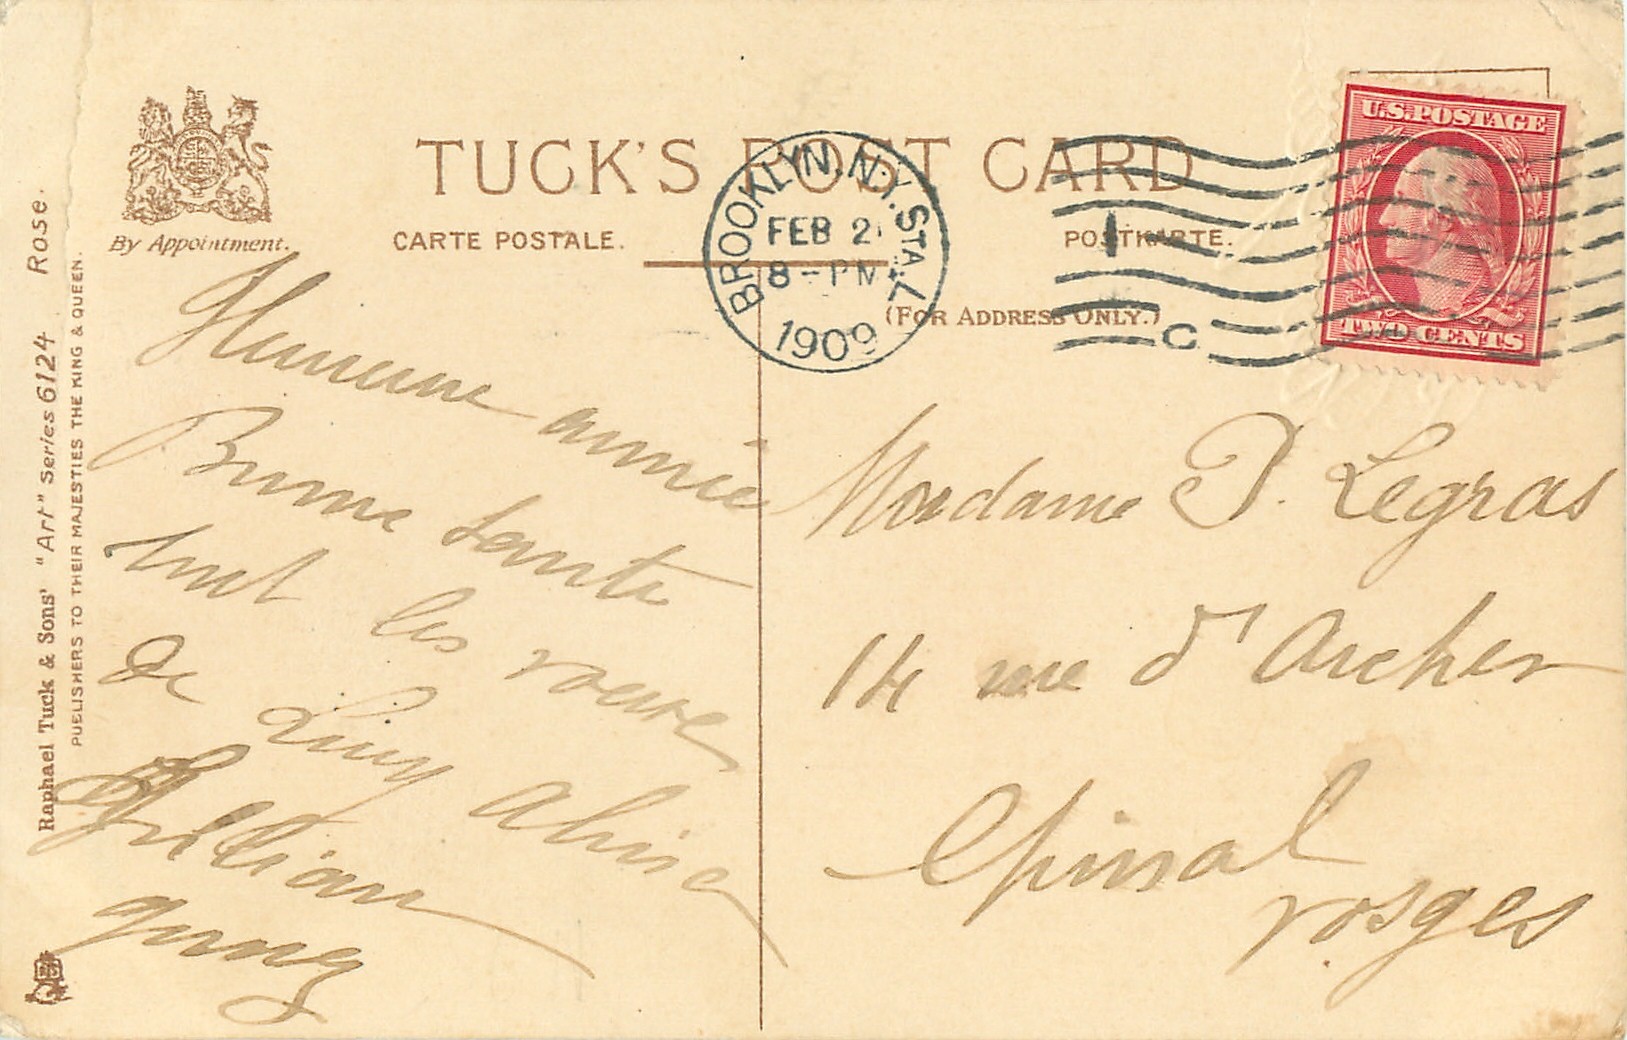 TUCK'S POST CARD
By Appointment.
CARTE POSTALE.
POSTKARTE.
(FOR ADDRESS ONLY.)
BROOKLYN, N.Y. STA. L
FEB 2
8 - PM
1909
C
U.S. POSTAGE
TWO CENTS
Raphael Tuck & Sons' "Art" Series 6124 Rose.
PUBLISHERS TO THEIR MAJESTIES THE KING & QUEEN.
année
Bonne Santé
les voeux
De Lucy
Lillian
Madame P. Legras
14 rue d'Archer
Epinal
Vosges